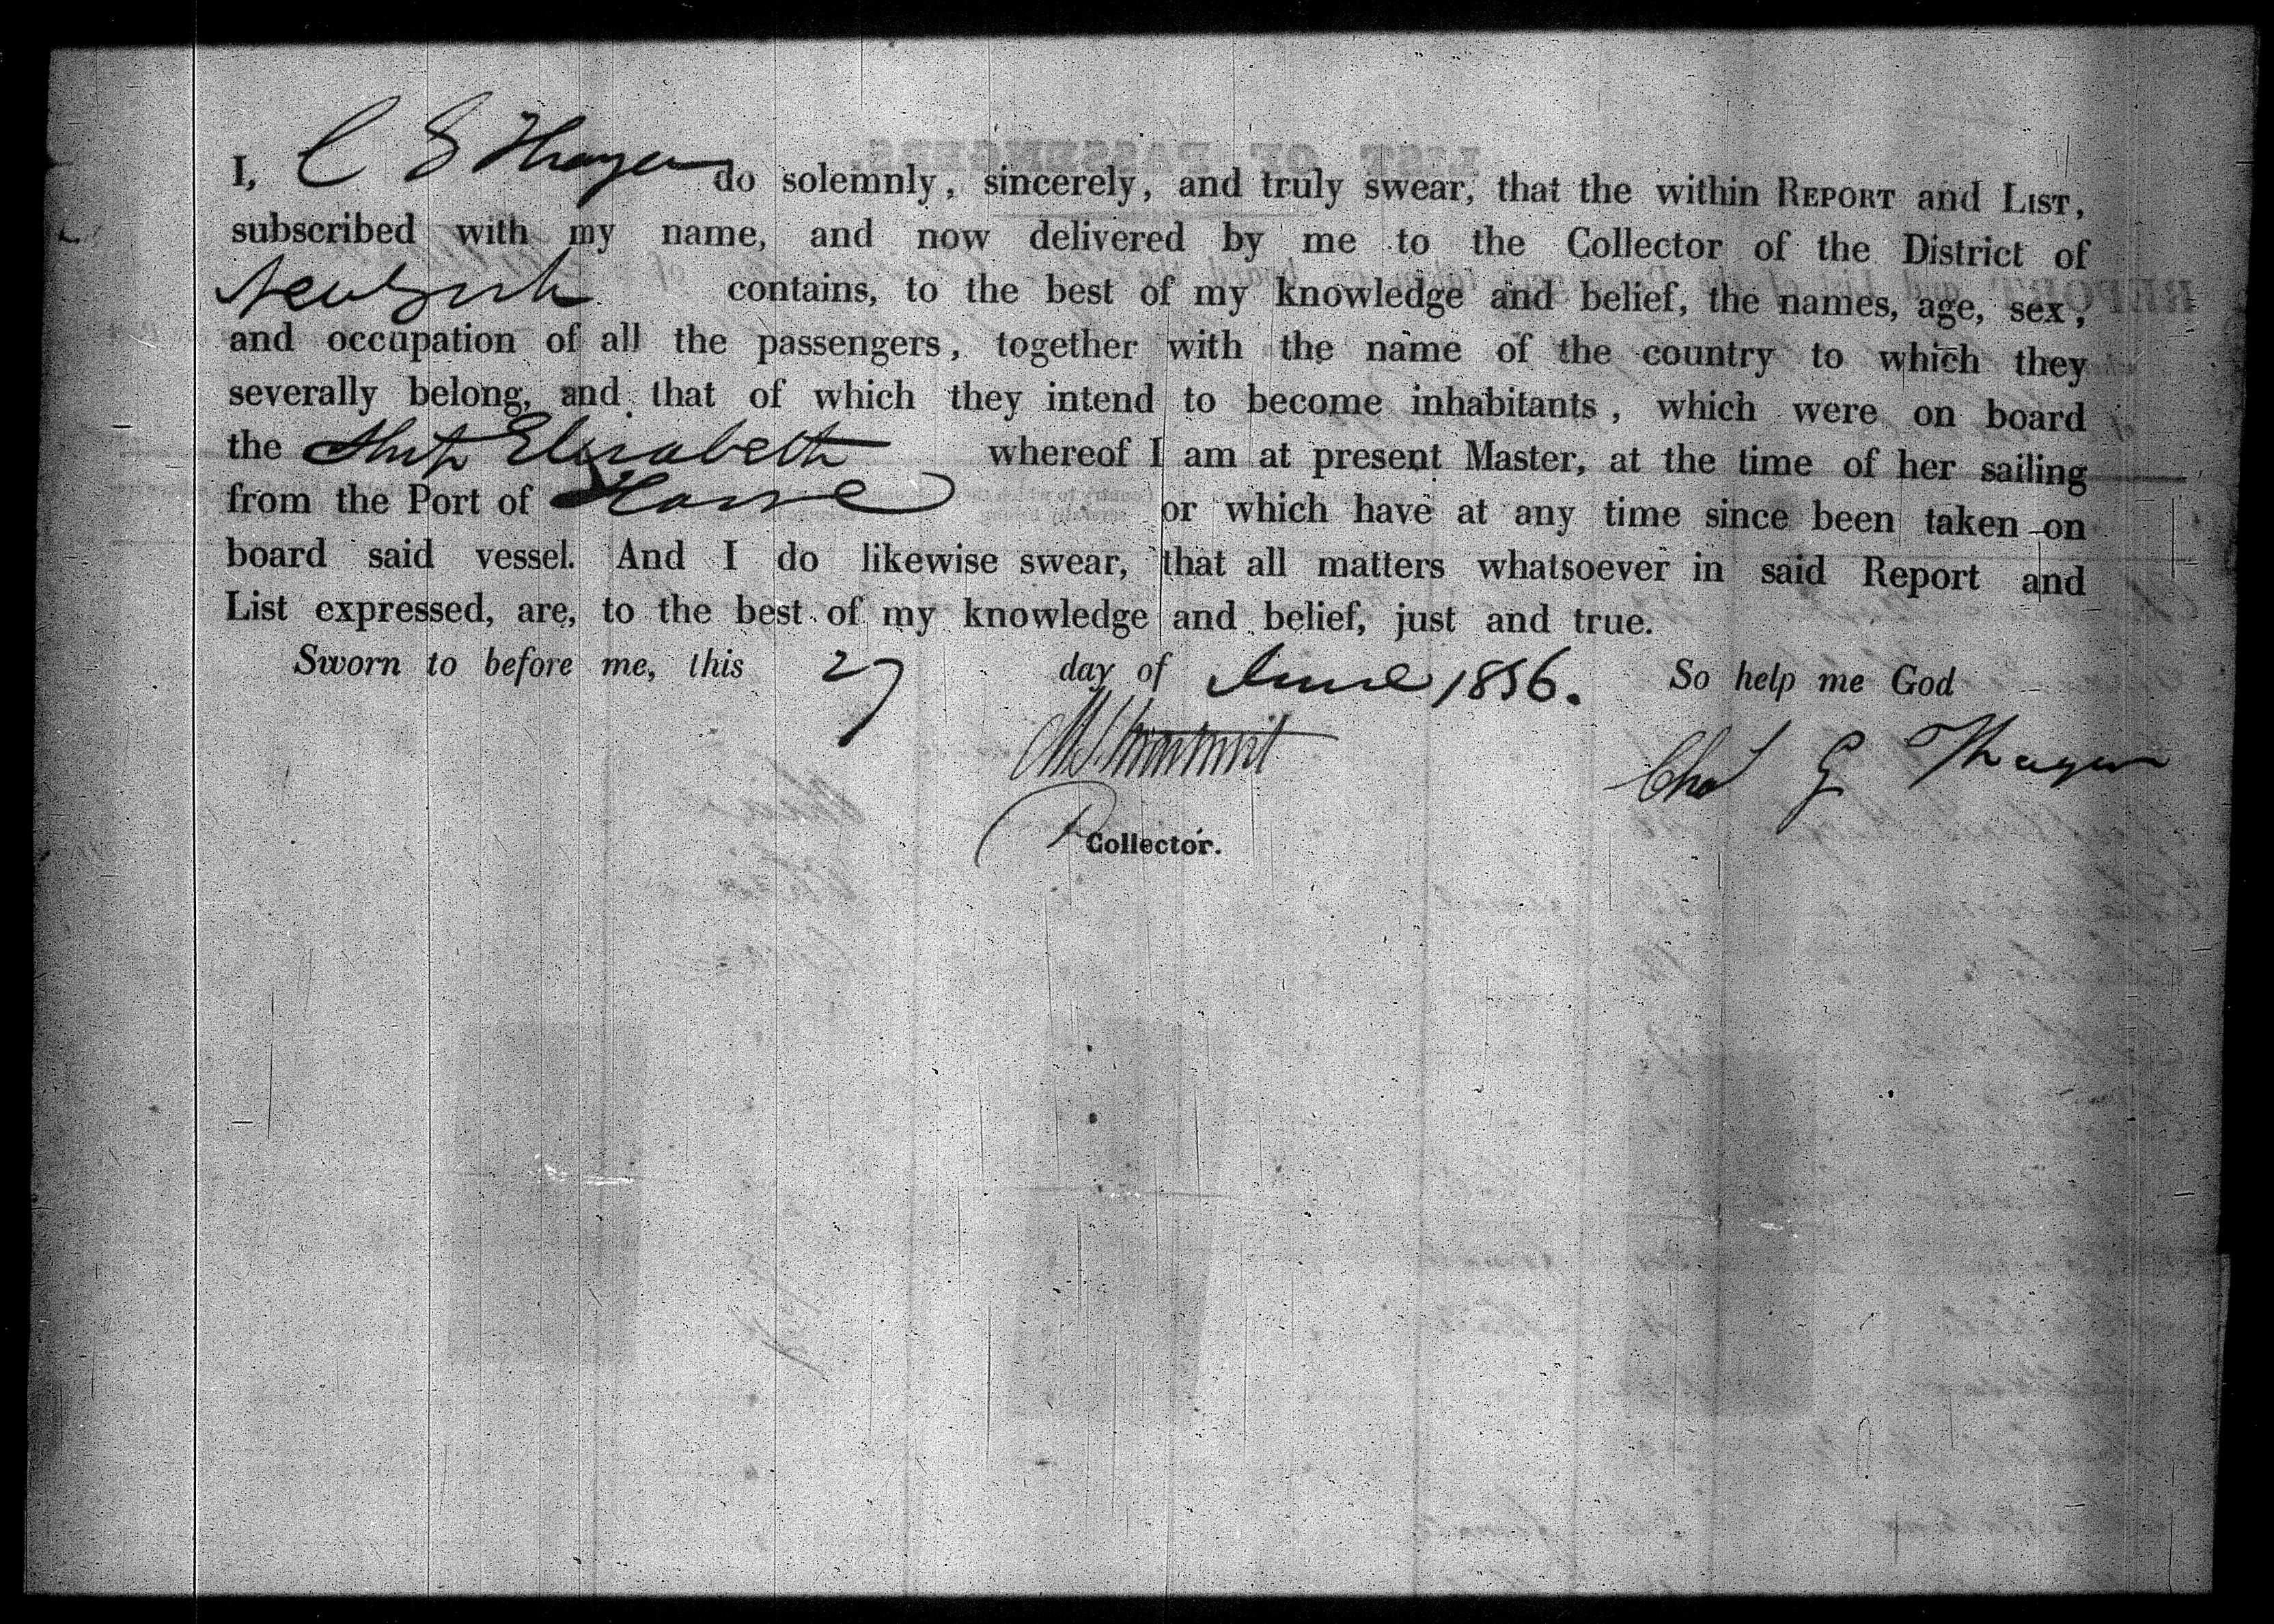 I, C G Thayer do solemnly, sincerely, and truly swear, that the within REPORT and LIST,
subscribed with my name, and now delivered by me to the Collector of the District of
New York contains, to the best of my knowledge and belief, the names, age, sex,
and occupation of all the passengers, together with the name of the country to which they
severally belong, and that of which they intend to become inhabitants, which were on board
the Ship Elizabeth whereof I am at present Master, at the time of her sailing
from the Port of Havre or which have at any time since been taken on
board said vessel. And I do likewise swear, that all matters whatsoever in said Report and
List expressed, are, to the best of my knowledge and belief, just and true.
Sworn to before me, this 27 day of June 1836. So help me God
Chs G Thayer
Collector.